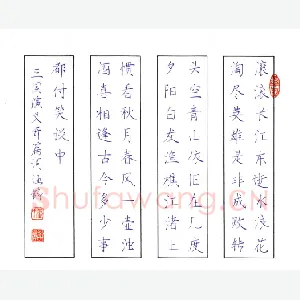 滚滚长江东逝水浪花
淘尽英雄是非成败转
头空青山依旧在几度
夕阳白发渔樵江渚上
惯看秋月春风一壶浊
酒喜相逢古今多少事
都付笑谈中
三国演义开篇词
Shufawang.CN